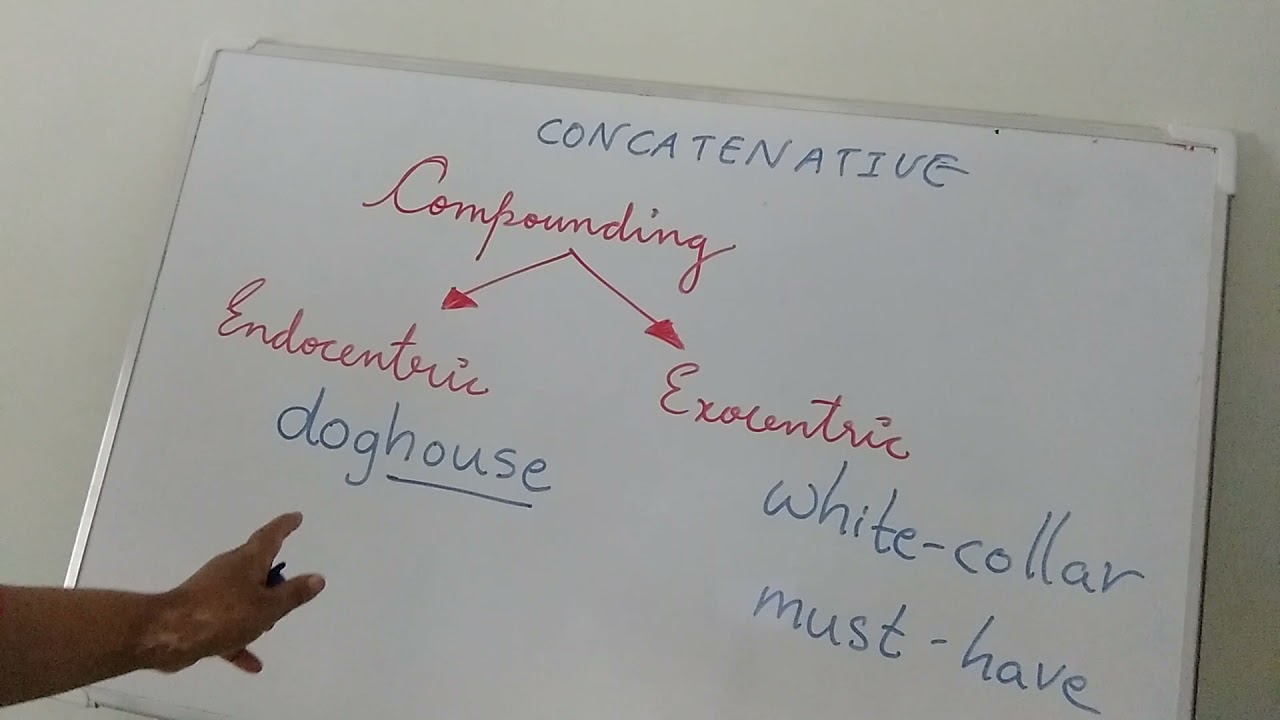 CONCATENATIVE
Compounding
Endocentric
Exocentric
doghouse
white-collar
must-have